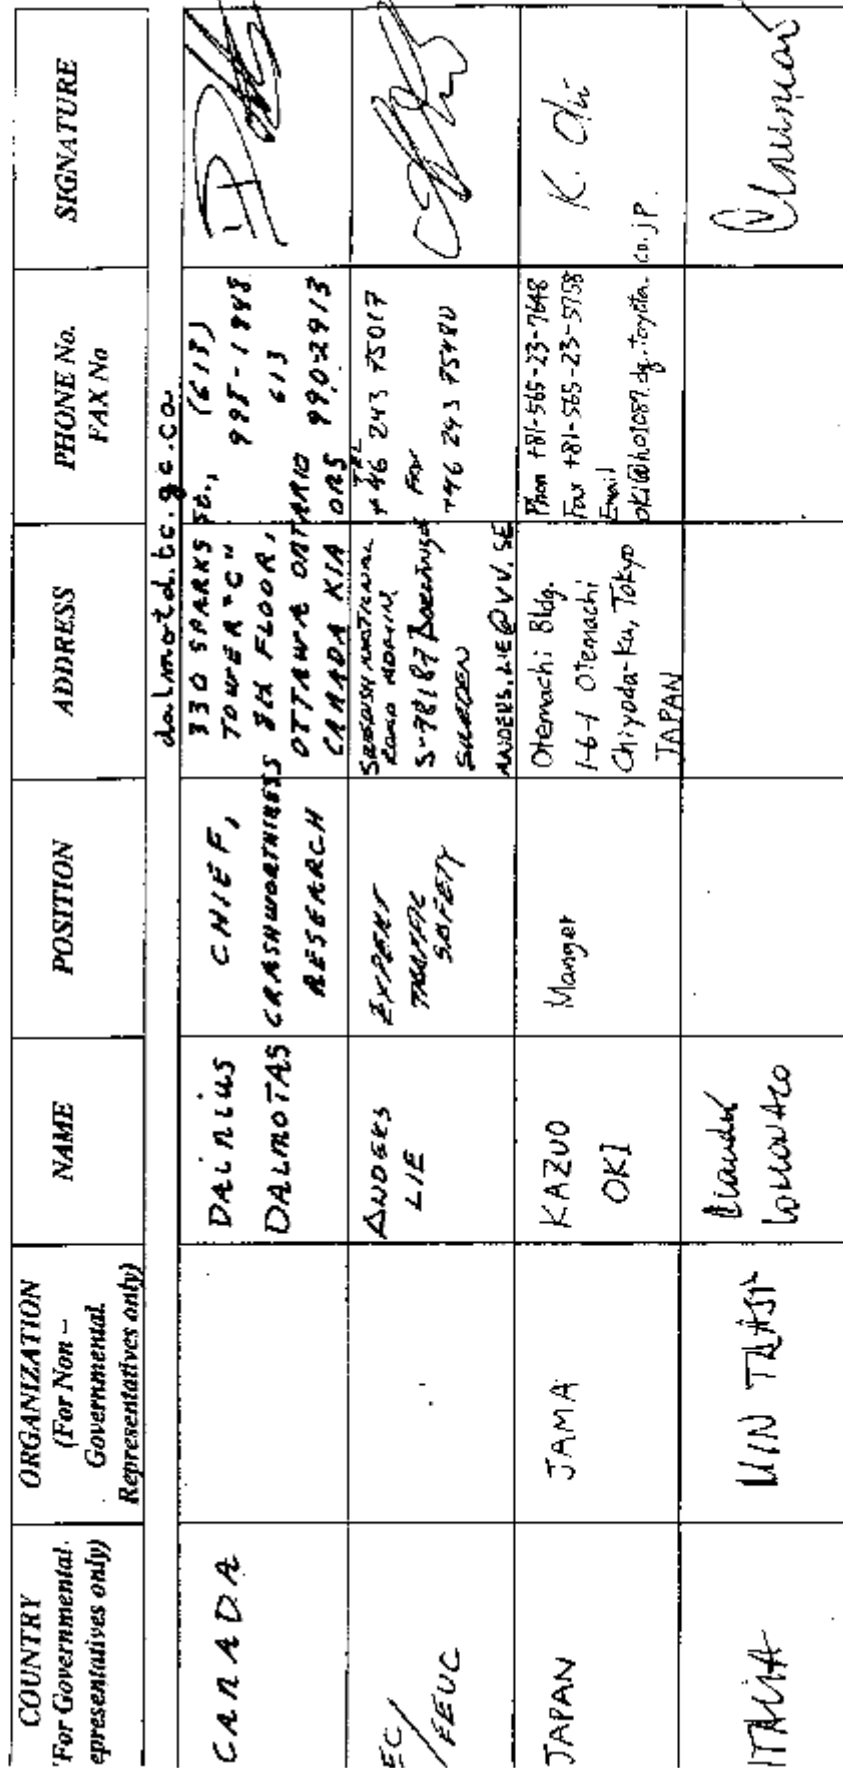 COUNTRY
For Governmental
epresentatives only)
ORGANIZATION
(For Non –
Governmental
Representatives only)
NAME
POSITION
ADDRESS
PHONE No.
FAX No
SIGNATURE
dalmotd.tc.gc.ca
CANADA
DAINIUS
DALMOTAS
CHIEF,
CRASHWORTHINESS
RESEARCH
330 SPARKS St.,
TOWER "C"
8th FLOOR,
OTTAWA ONTARIO
CANADA K1A 0N5
(613)
998-1948
613
990-2913
EC/
EEVC
ANDERS
LIE
EXPERT
TRAFFIC
SAFETY
SWEDISH NATIONAL
ROAD ADMIN.
S-78187 BORLÄNGE
SWEDEN
ANDERS.LIE@VV.SE
TEL
+46 243 75017
FAX
+46 243 75480
JAPAN
JAMA
KAZUO
OKI
Manger
Otemachi Bldg.
1-6-1 Otemachi
Chiyoda-Ku, Tokyo
JAPAN
Phon +81-565-23-7648
Fax +81-565-23-5758
Email
K. Oki
ITALIA
MIN